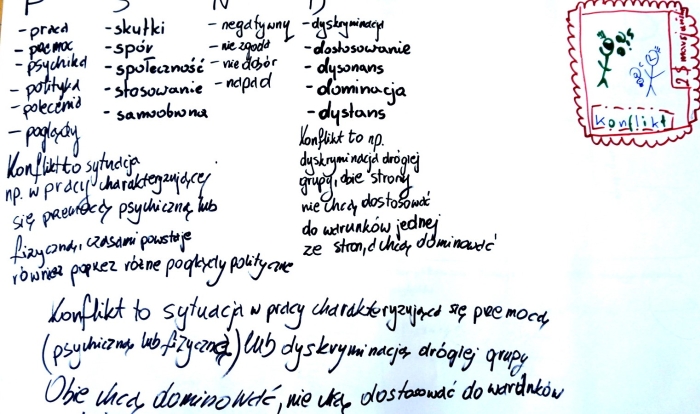 P
- praca
- pzemoc
- psychika
- polityka
- polecenia
- poglądy
S
- skutki
- spór
- społeczność
- stosowanie
- samoobrona
N
- negatywny
- niezgoda
- niedobór
- napad
D
- dyskryminacja
- dostosowanie
- dysonans
- dominacja
- dystans
Konflikt to sytuacja
np. w pracy charakteryzującej
się przemocą psychiczną lub
fizyczną, czasami powstaje
również poprzez różne poglądy polityczne
Konflikt to np.
dyskryminacja drógiej
grupy, obie strony
nie chcą dostosować
do warunków jednej
ze stron, a chcą dominować
Konflikt to sytuacja w pracy charakteryzująca się przemocą
(psychiczną lub fizyczną) lub dyskryminacją drógiej grupy
Obie chcą dominować, nie chcą dostosować do warunków
konflikt